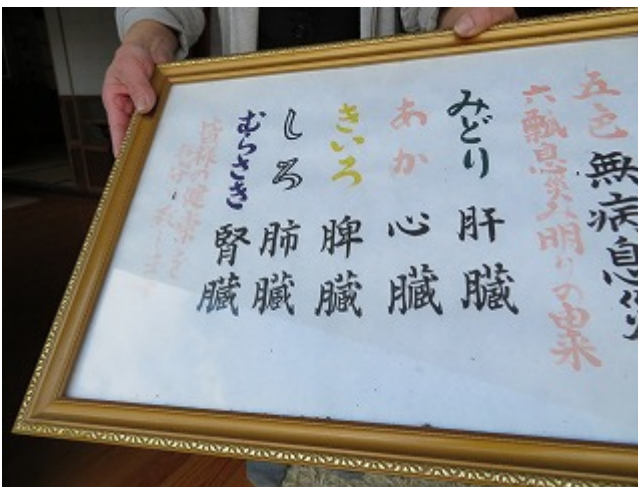 五色
無病息災
六瓢息災大明りの由来
みどり 肝臓
あか 心臓
きいろ 脾臓
しろ 肺臓
むらさき 腎臓